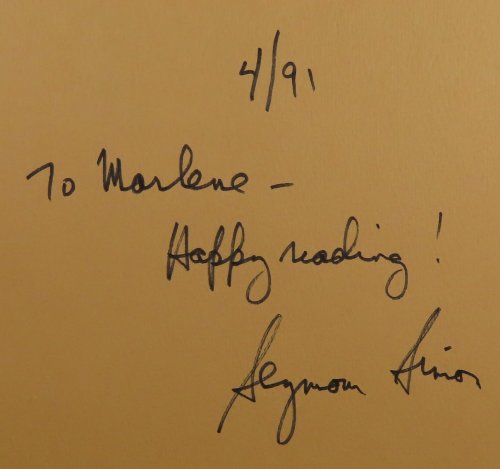 4/91
To Marlene -
Happy reading!
Seymour Simon